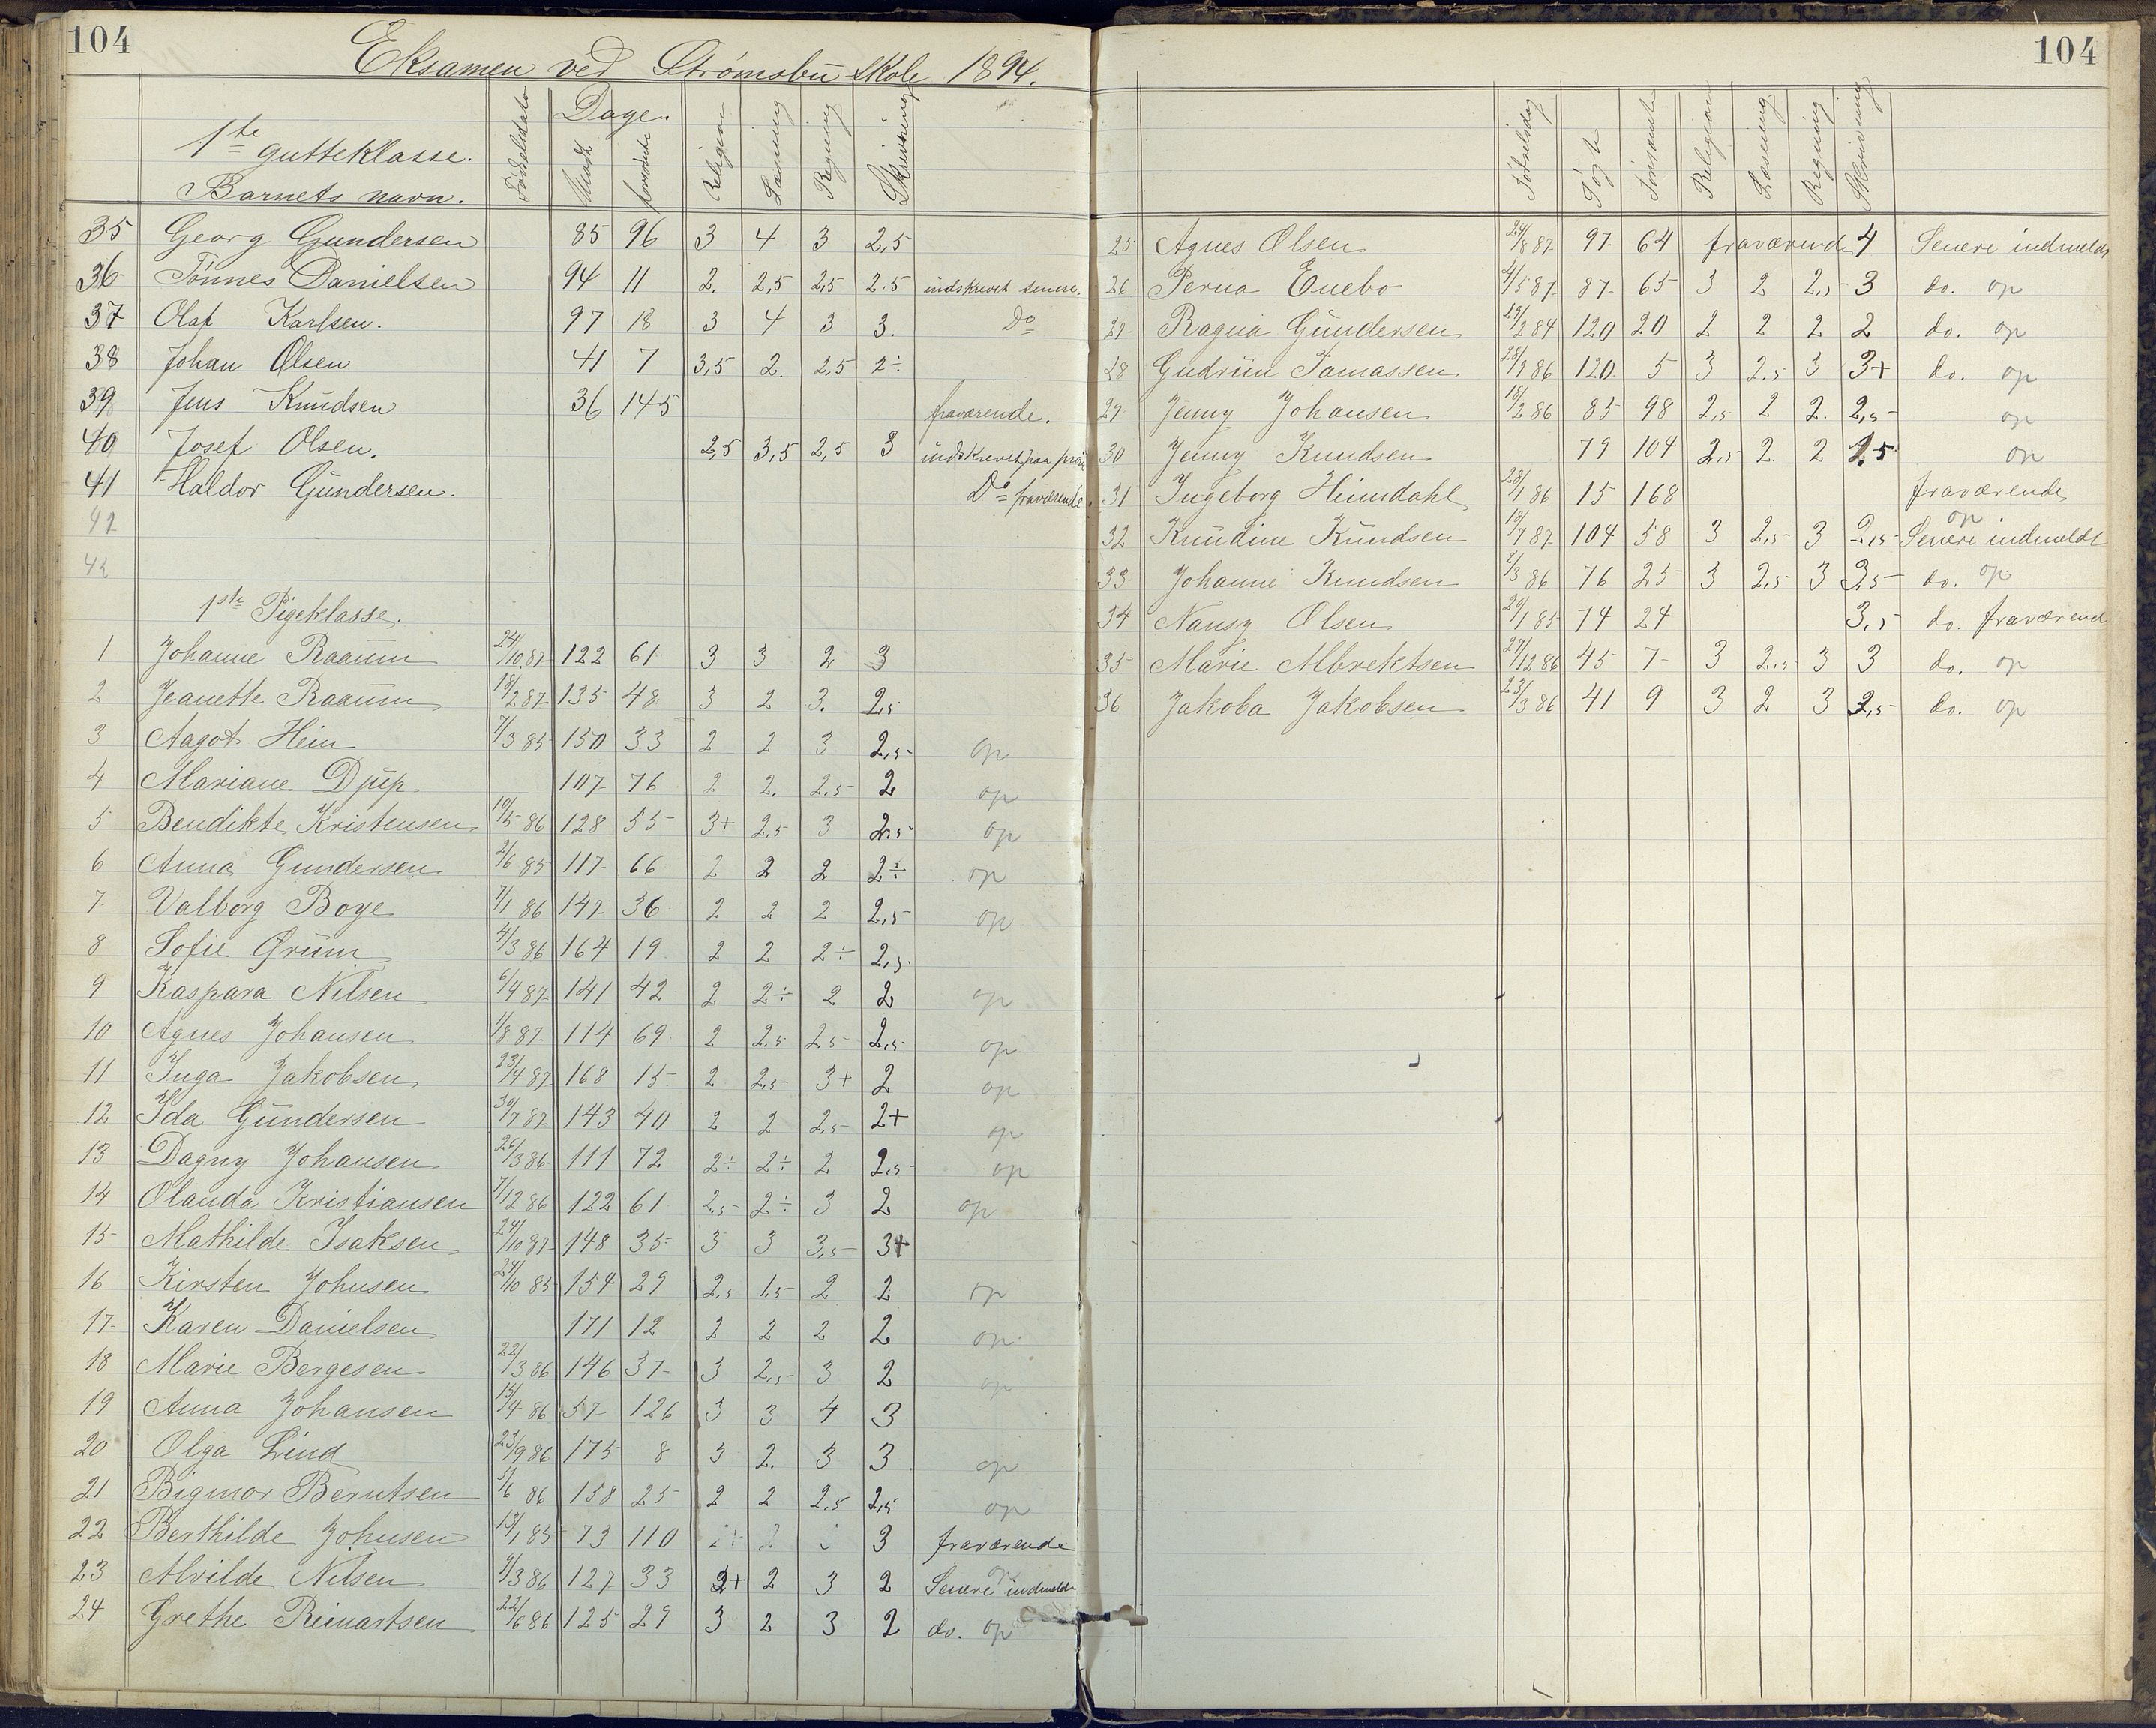 104
Eksamen ved Strømsbu skole 1894.
Dage.
1ste gutteklasse.
Barnets navn. Fødselsdato Mødt forsømte Religion Læsning Regning Skrivning
35 Georg Gundersen 85 96 3 4 3 2,5
36 Tønnes Danielsen 94 11 2. 2,5 2,5 2.5 indskrevet senere.
37 Olaf Karlsen. 97 18 3 4 3 3. Do
38 Johan Olsen 41 7 3,5 2. 2,5 2÷
39 Jens Knudsen 36 145 fraværende.
40 Josef Olsen. 2,5 3,5 2,5 3 indskrevet paa
41 Haldor Gundersen. Do fraværende
42
42
1ste Pigeklasse.
1 Johanne Raaum 24/10.87 122 61 3 3 2 3
2 Jeanette Raaum 18/2 87 135 48 3 2 3. 2,5
3 Aagot Hein 7/3 85 150 33 2 2 3 2,5 op
4 Mariane Djup 107 76 2 2. 2.5 2 op
5 Bendikte Kristensen 10/5 86 128 55 3+ 2,5 3 2,5 op
6 Anna Gundersen 2/6 85 117 66 2 2 2 2÷ op
7 Valborg Boye 7/1 86 147 36 2 2 2 2,5 op
8 Sofie Grum 4/3 86 164 19 2 2 2÷ 2,5
9 Kaspara Nilsen 6/4 87 141 42 2 2÷ 2 2 op
10 Agnes Johansen 1/8 87 114 69 2 2.5 2.5 2,5 op
11 Inga Jakobsen 23/4 87 168 15 2 2,5 3+ 2 op
12 Ida Gundersen 30/7 87 143 40 2 2 2,5 2+ op
13 Dagny Johansen 26/3 86 111 72 2÷ 2÷ 2 2.5 op
14 Olanda Kristiansen 7/12 86 122 61 2,5 2÷ 3 2 op
15 Mathilde Isaksen 24/10 87 148 35 3 3 3,5 3+
16 Kirsten Johnsen 24/10 85 154 29 2,5 1.5 2 2 op
17 Karen Danielsen 171 12 2 2 2 2 op
18 Marie Bergesen 22/3 86 146 37 3 2,5 3 2 op
19 Anna Johansen 15/4 86 57 126 3 3 4 3
20 Olga Lind 23/9 86 175 8 3 2. 3 3 op
21 Bigmor Berntsen 5/6 86 158 25 2 2 2,5 2,5 op
22 Berthilde Johnsen 13/1 85 73 110 3 fraværende
23 Alvilde Nilsen 9/3 86 127 33 2+ 2 3 2 Senere indmeldt op
24 Grethe Reinartsen 22/6 86 125 29 3 2 3 2 do. op
104
Fødselsdag Søgte Forsømte Religion Læsning Regning Skrivning
25 Agnes Olsen 24/8 87 97 64 fraværende 4 Senere indmeldt
26 Perna Enebo 4/5 87 87 65 3 2 2,5 3 do. op
27 Ragna Gundersen 29/2 84 120 20 2 2 2 2 do. op
28 Gudrun Tomassen 28/9 86 120 5 3 2.5 3 3+ do. op
29 Jenny Johansen 18/2 86 85 98 2,5 2 2. 2,5 op
30 Jenny Knudsen 79 104 2,5 2 2 2.5 op
31 Ingeborg Heimdahl 28/1 86 15 168 fraværende
32 Knudine Knudsen 18/7 87 104 58 3 2,5 3 2,5 Senere indmeldt op
33 Johanne Knudsen 2/3 86 76 25 3 2,5 3 3,5 do. op
34 Nansy Olsen 29/1 85 74 24 3,5 do. fraværend
35 Marie Albrektsen 27/12 86 45 7 3 2,5 3 3 do. op
36 Jakoba Jakobsen 23/3 86 41 9 3 2 3 2,5 do. op